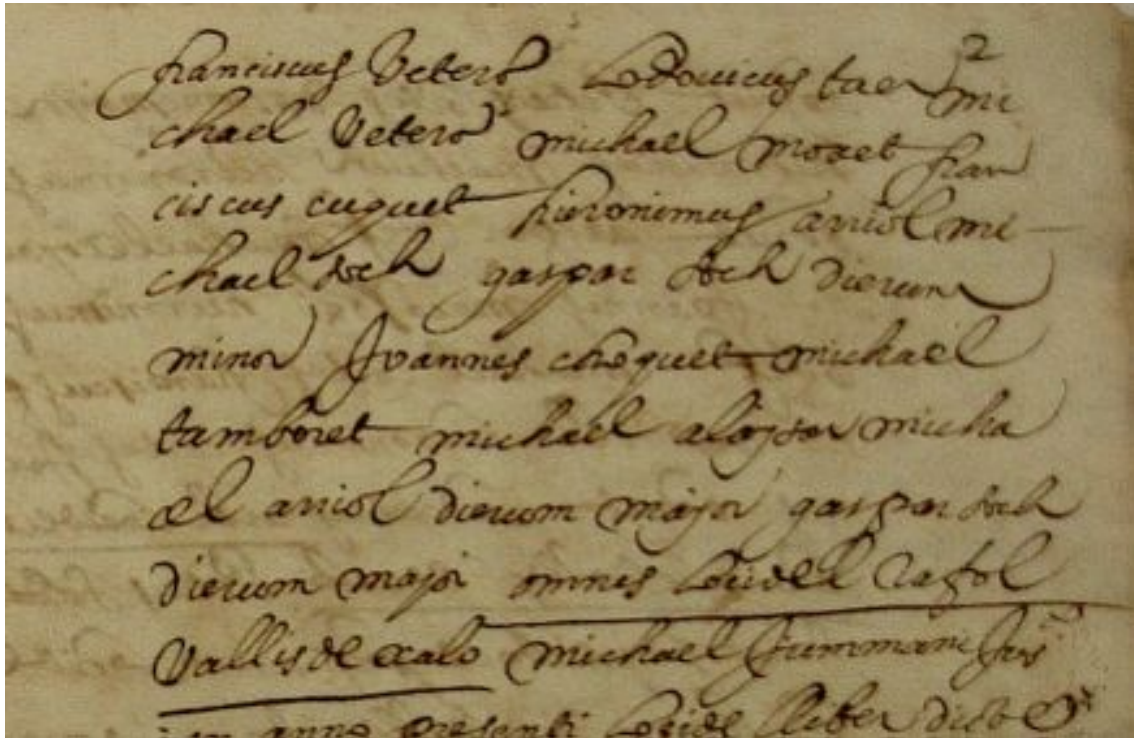 2
franciscus Vetero Lodovicus taer mi
chael Vetero michael moret fran
ciscus cuquet hieronimus arriol mi
chael doch gaspar doch dierum
minor Joannes choquet michael
tamboret michael micha
el arriol dierum major gaspar doch
dierum major omnes Loci del Rafol
Vallis de exalo michael
in anno presenti Loci de lliber dicto